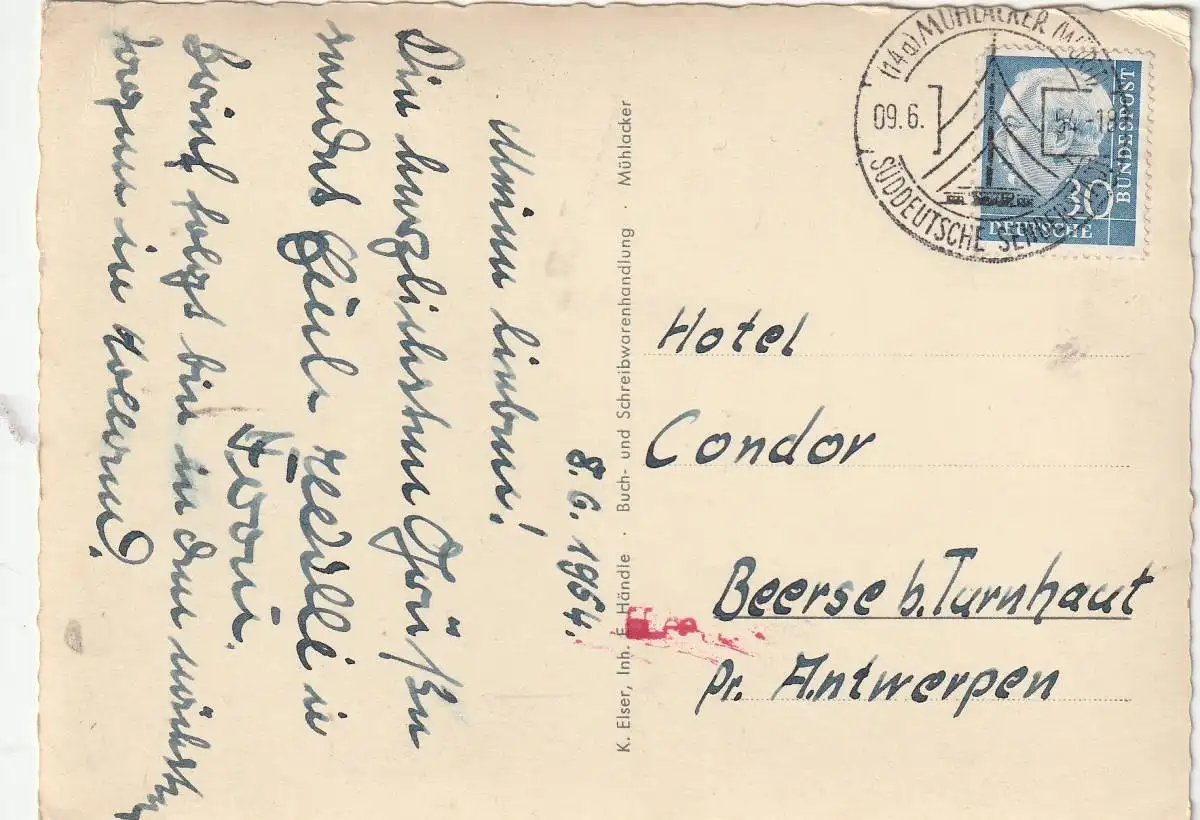 (14a) MÜHLACKER (WÜRTT)
09.6. 54.-18
SÜDDEUTSCHE SENDER
BUNDESPOST
30
DEUTSCHE
8.6.1954.
Meine Lieben!
Die herzlichsten Grüße
sendet Euch
Brief folgt bin in den nächsten
Tagen in
K. Elser, Inh. E. Händle · Buch- und Schreibwarenhandlung · Mühlacker
Hotel
Condor
Beerse b. Turnhaut
pr. Antwerpen